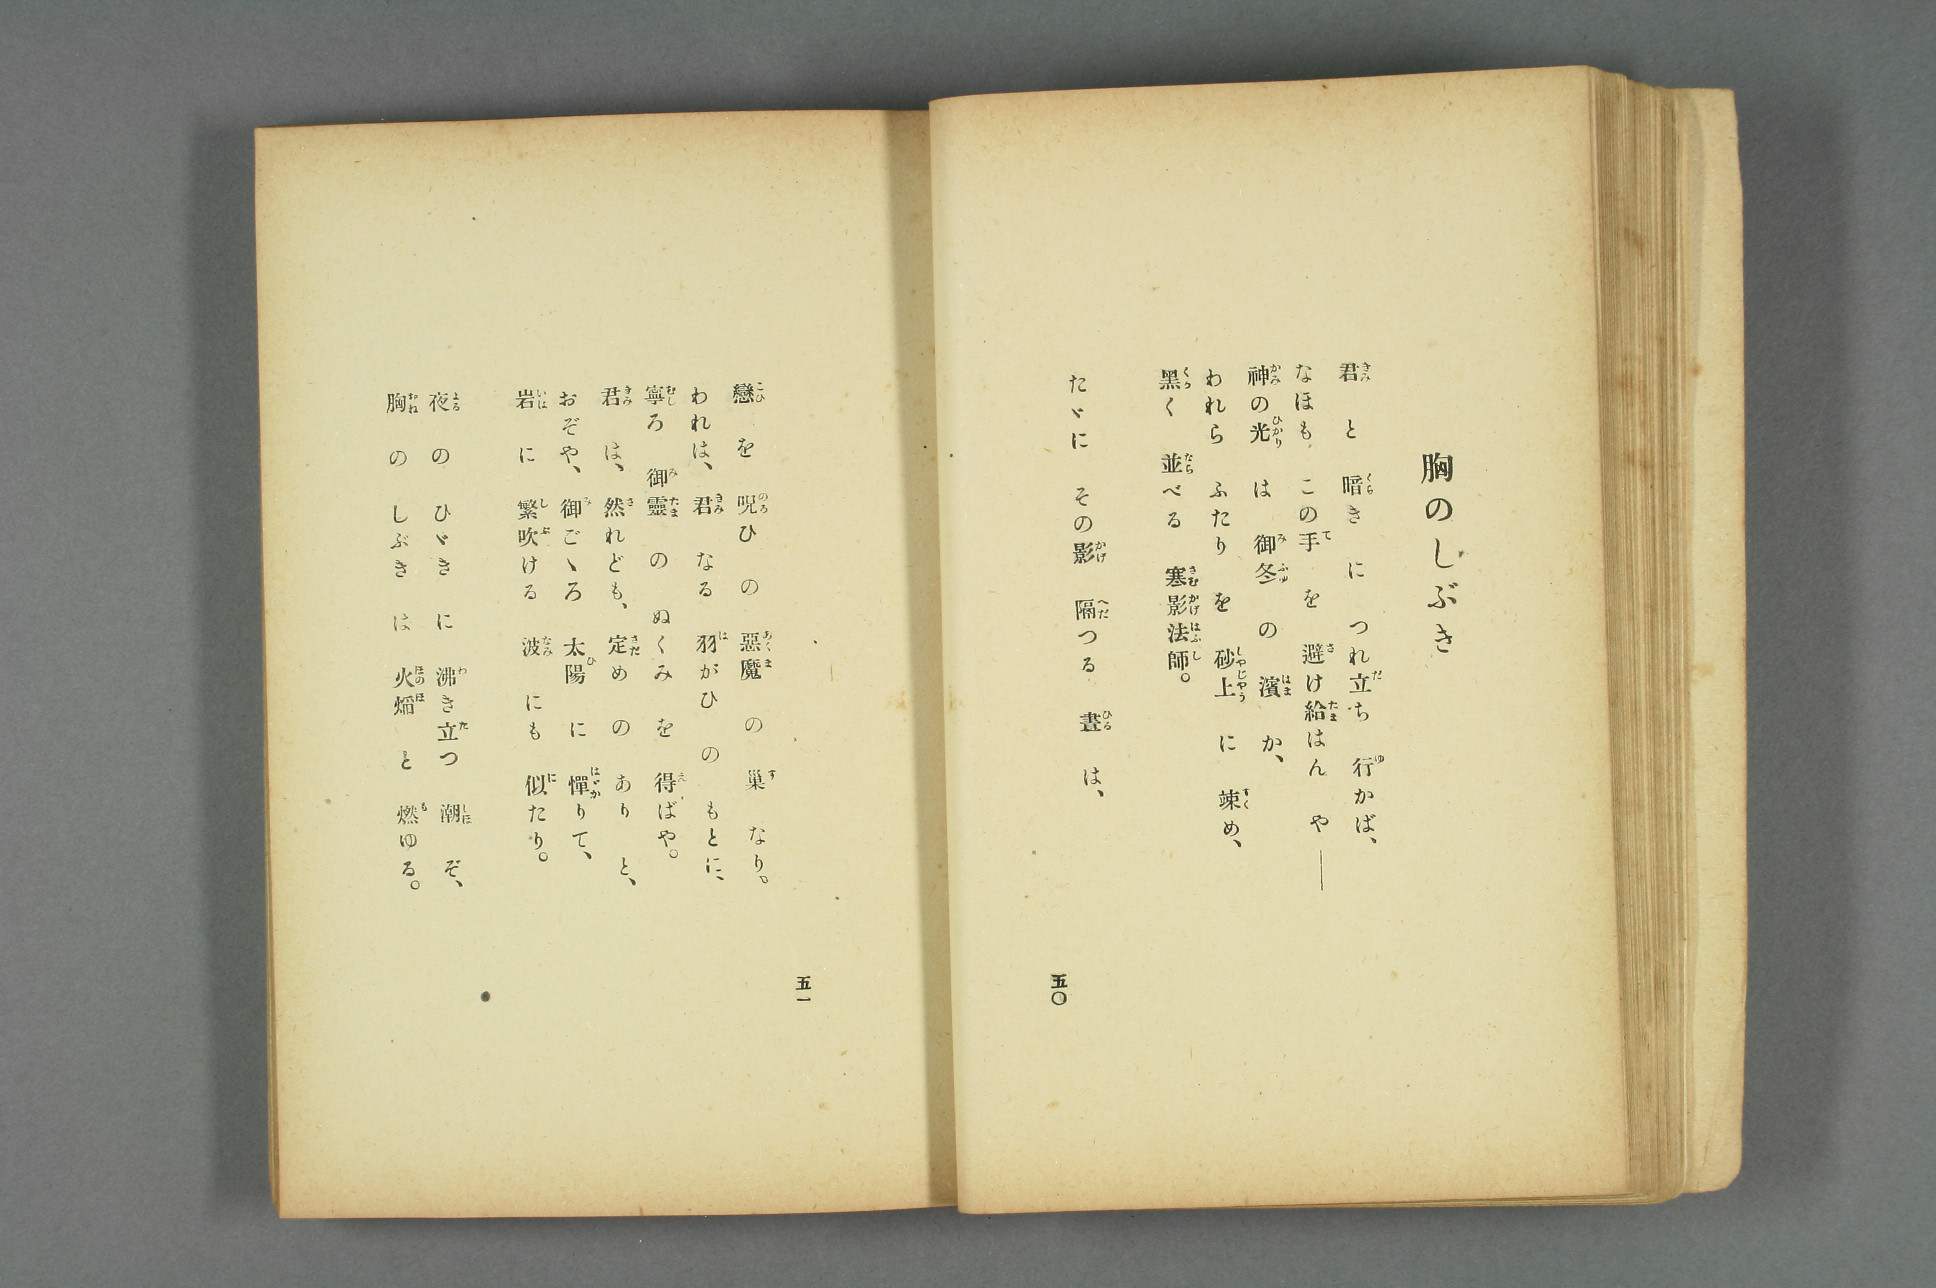 胸のしぶき
君と暗きにつれ立ち行かば、
なほも、この手を避け給はんや――
神の光は御冬の濱か、
われらふたりを砂上に竦め、
黑く並べる寒影法師。
たゞにその影隔つる晝は、
五〇
戀を呪ひの惡魔の巢なり。
われは、君なる羽がひのもとに、
寧ろ御靈のぬくみを得ばや。
君は、然れども、定めのありと、
おぞや、御ごゝろ太陽に憚りて、
岩に繁吹ける波にも似たり。
夜のひゞきに沸き立つ潮ぞ、
胸のしぶきは火焔と燃ゆる。
五一